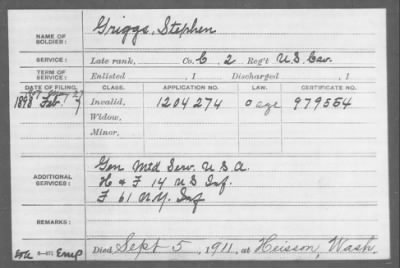 NAME OF SOLDIER: Griggs, Stephen
SERVICE: Late rank, Co. C, 2 Reg't U.S. Cav.
TERM OF SERVICE: Enlisted , 1 Discharged , 1
DATE OF FILING. CLASS. APPLICATION NO. LAW. CERTIFICATE NO.
1898 Feb. 7 Invalid, 1204274 age 979554
Widow,
Minor,
ADDITIONAL SERVICES: Gen Mtd Serv. U.S.A.
H & F 14 U S Inf.
F 61 N.Y. Inf
REMARKS:
Died Sept 5, 1911, at Heisson, Wash.